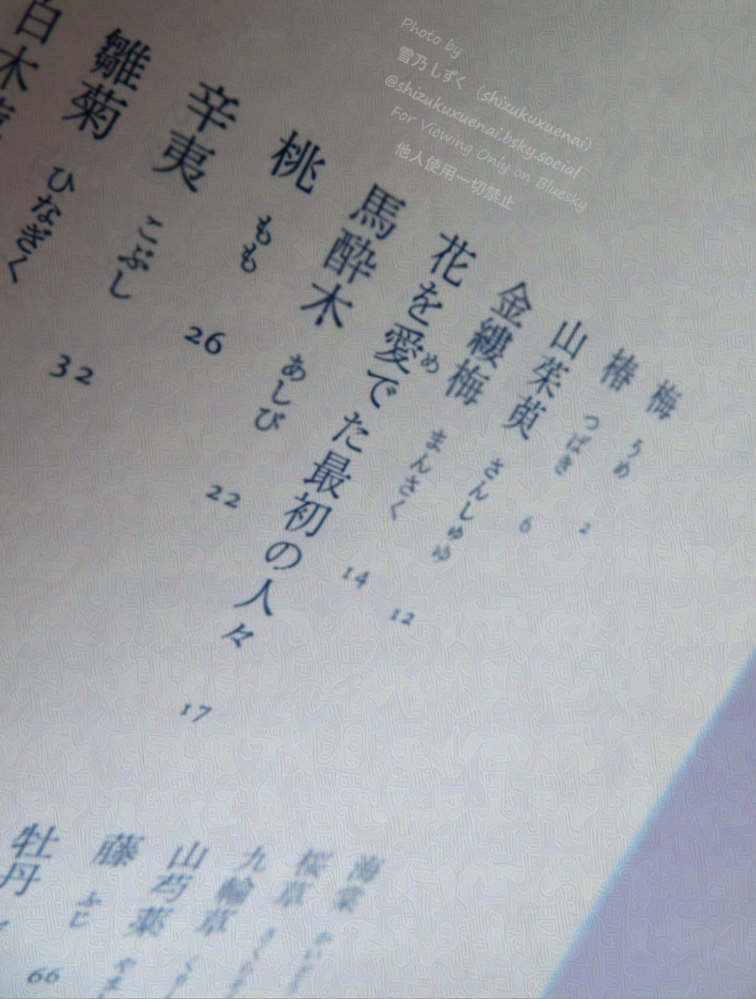 Photo by
雪乃 しずく (shizukuxuenai)
@shizukuxuenai.bsky.social
For Viewing Only on Bluesky
他人使用一切禁止
梅 うめ 2
椿 つばき 6
山茱萸 さんしゅゆ 12
金縷梅 まんさく 14
花を愛でた最初の人々 17
め
馬酔木 あしび 22
桃 もも 26
辛夷 こぶし 32
雛菊 ひなぎく
白木
海棠 かいどう
桜草
九輪草 くりん
山芍薬 やま
藤 ふじ 66
牡丹